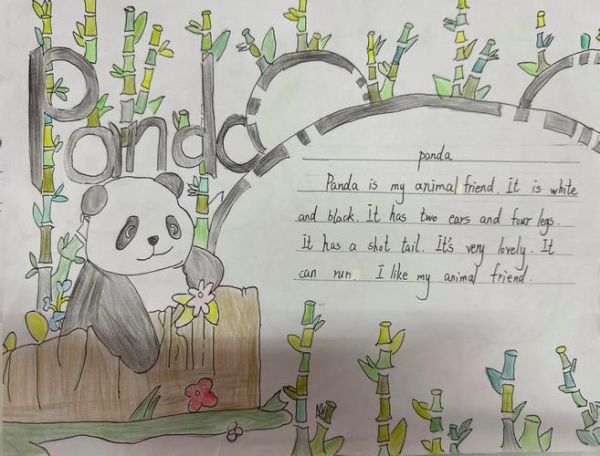 Panda
panda
Panda is my animal friend. It is white
and black. It has two ears and four legs.
It has a shot tail. It's very lovely. It
can run. I like my animal friend.